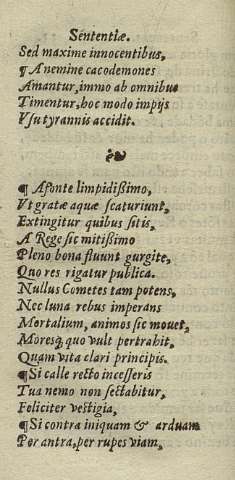 Sententiæ.
Sed maxime innocentibus,
¶ A nemine cacodemones
Amantur, immo ab omnibus
Timentur, hoc modo impijs
Vsu tyrannis accidit.
¶ A fonte limpidißimo,
Vt gratæ aquæ scaturiunt,
Extingitur quibus sitis,
A Rege sic mitißimo
Pleno bona fluunt gurgite,
Quo res rigatur publica.
Nullus Cometes tam potens,
Nec luna rebus imperans
Mortalium, animos sic mouet,
Moresq; quo vult pertrahit,
Quam vita clari principis.
¶ Si calle recto incesseris
Tua nemo non sectabitur,
Feliciter vestigia,
¶ Si contra iniquam & arduam
Per antra, per rupes viam,